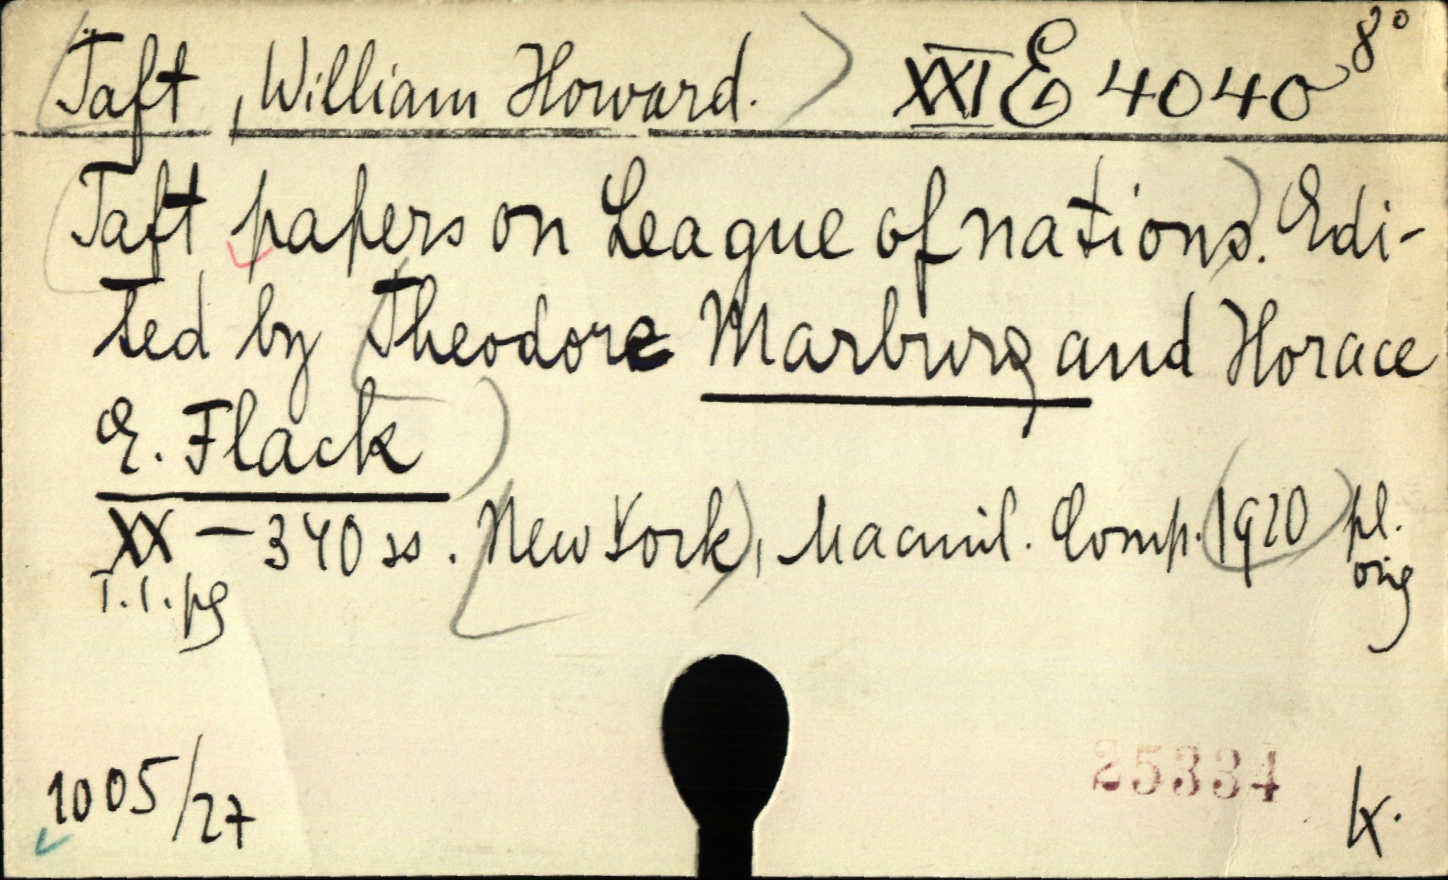 Taft, William Howard. XXI E 4040 8°
Taft papers on League of nations. Edi-
ted by Theodore Marburg and Horace
E. Flack
XX — 340 ss. New York, Macmil. Comp. 1920 pl.
orig
T.T. pg
25334
1005/27